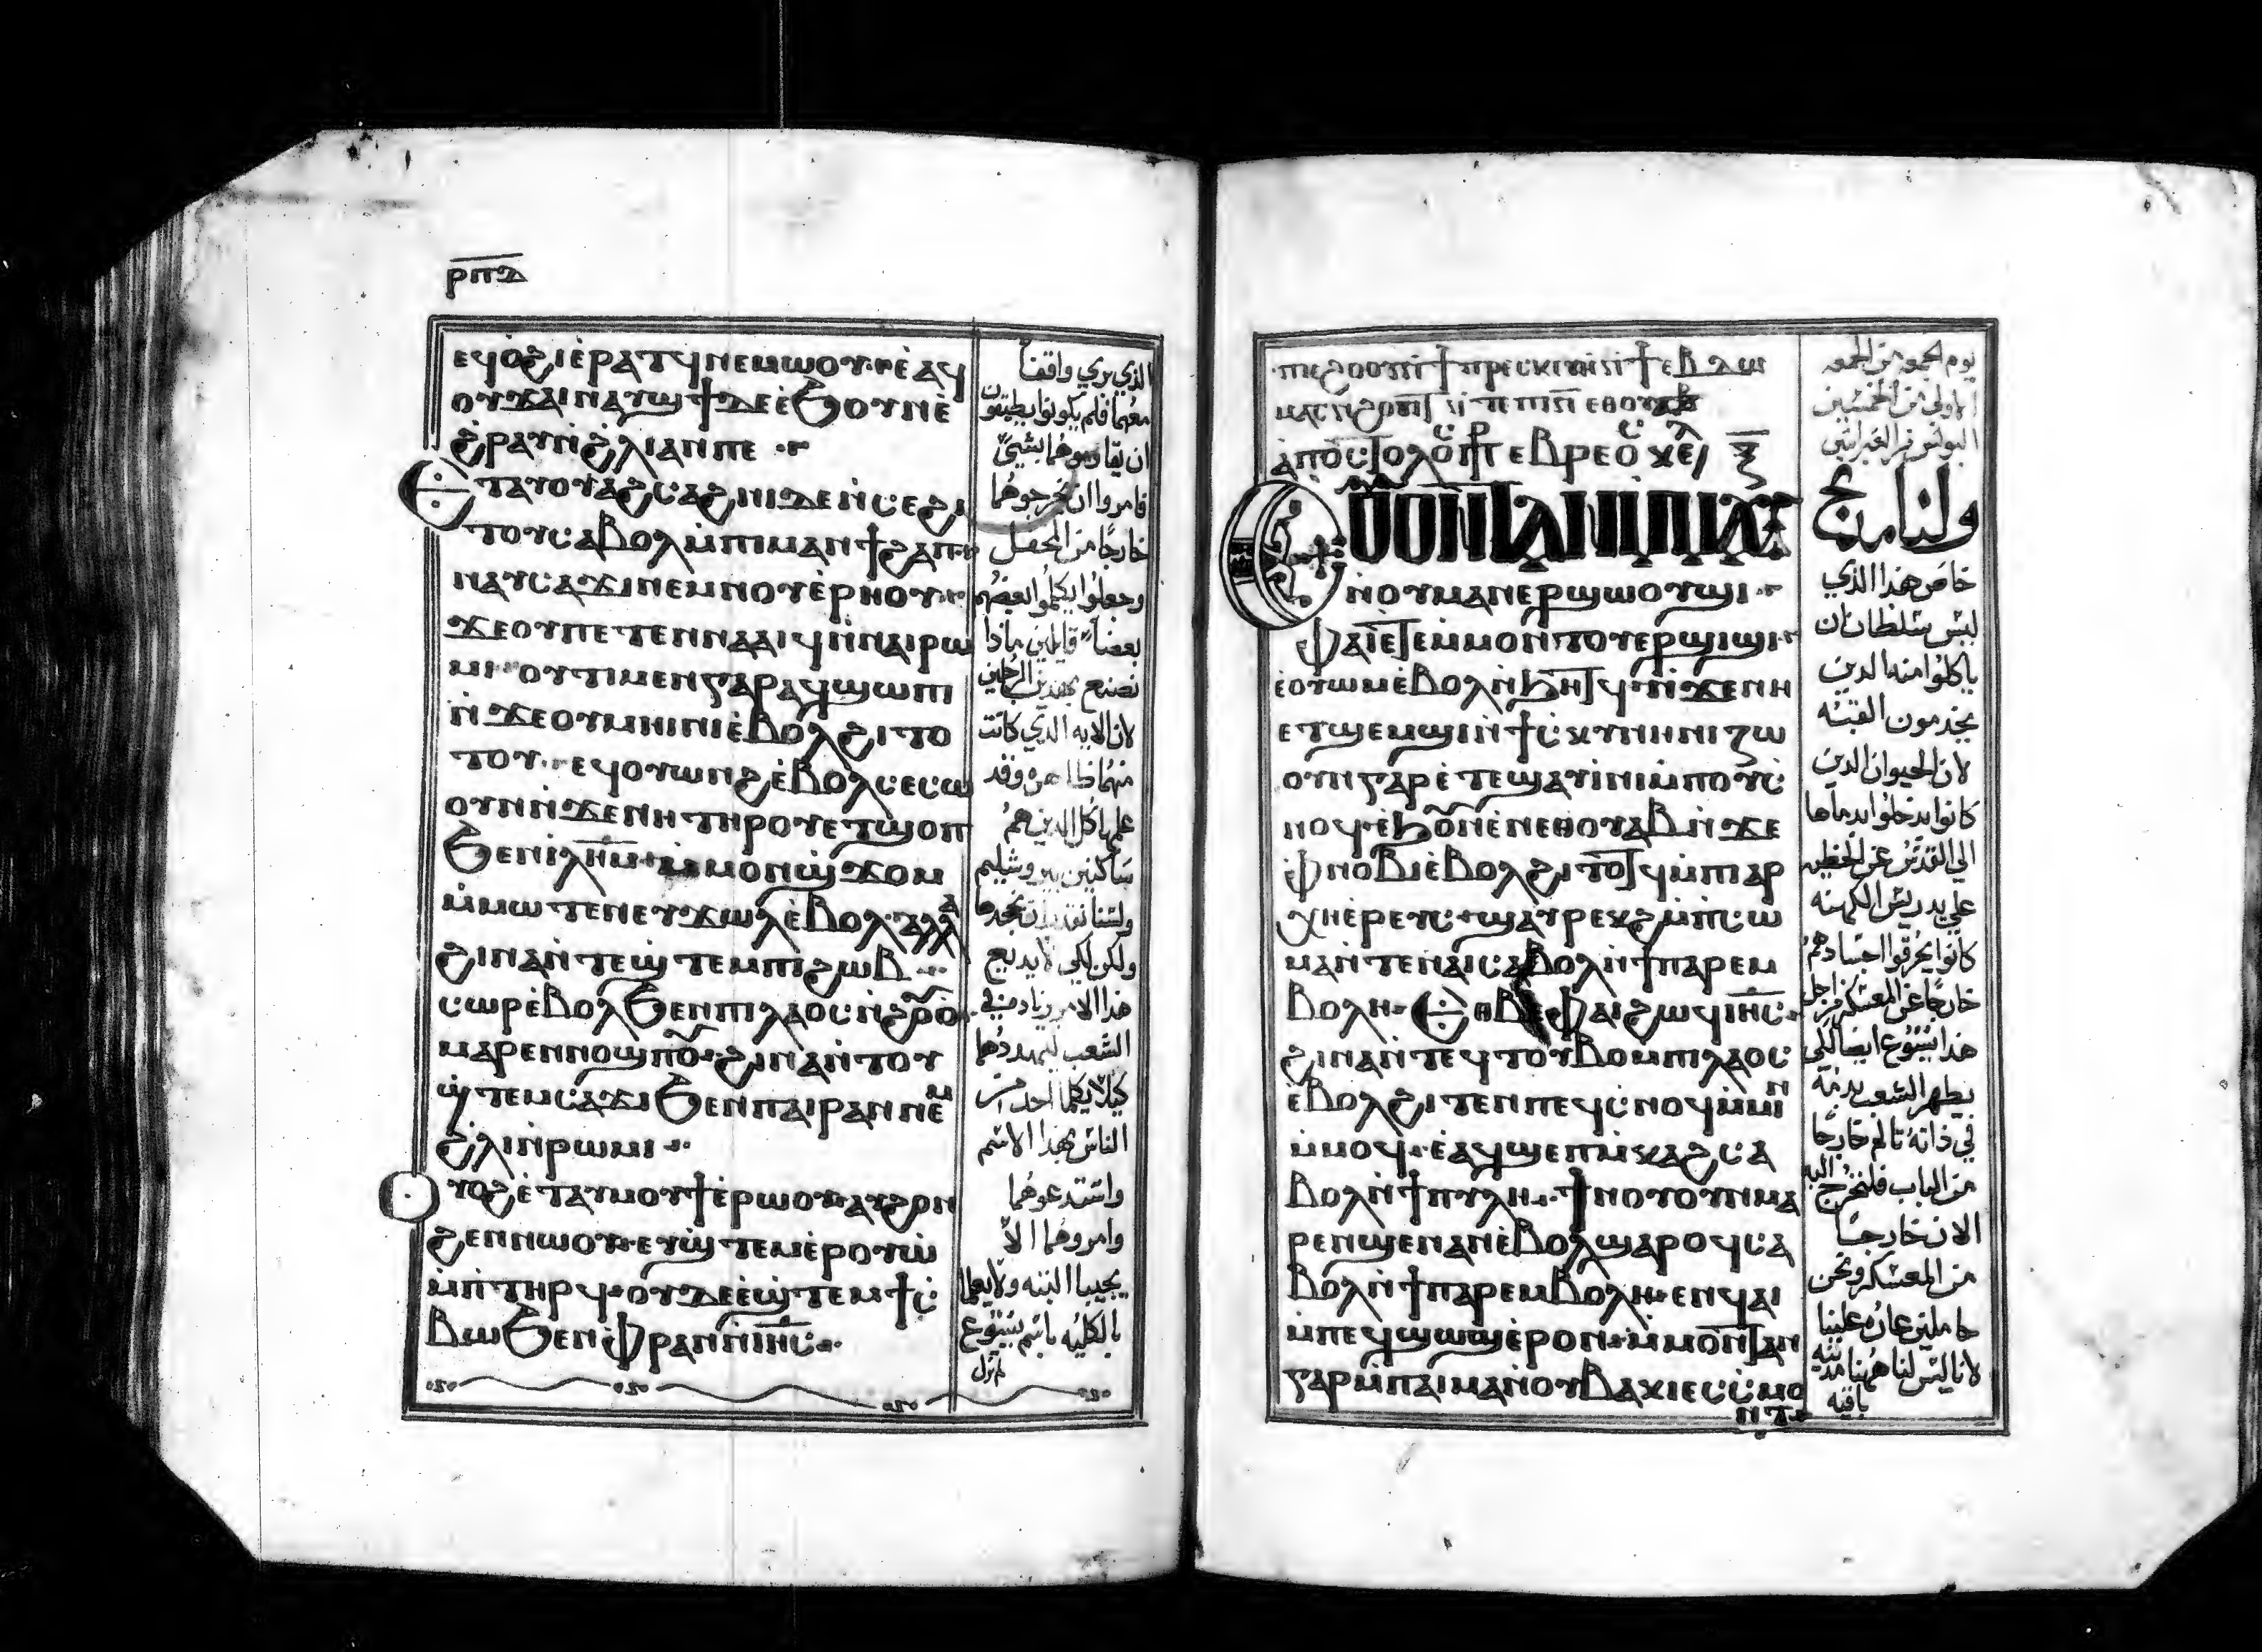 ⲣⲡⲇ
ⲉϥⲟ̀ϩⲓⲉ̀ⲣⲁⲧϥⲛⲉⲙⲱⲟⲩ ⲉ̀ⲁϥ
ⲟⲩϫⲁⲓⲛⲁⲩϣϯⲇⲉⲉ̀ϧⲟⲩⲛⲉ̀
ϩ̀ⲣⲁⲩⲛ̀ϩ̀ⲗⲓⲁⲛⲡⲉ
ⲉⲧⲁⲩⲟⲩⲁϩⲥⲁϩⲛⲓⲇⲉⲛ̀ⲥⲉϩⲓ
ⲧⲟⲩⲥⲁⲃⲟⲗⲙ̀ⲡⲓⲙⲁⲛϯϩⲁⲡ
ⲛⲁⲩⲥⲁϫⲓⲛⲉⲙⲛⲟⲩⲉ̀ⲣⲏⲟⲩ
ϫⲉⲟⲩⲡⲉⲧⲉⲛⲛⲁⲁⲓϥⲛ̀ⲛⲁⲓⲣⲱ
ⲙⲓ ⲟⲩⲧⲓⲙⲉⲛⲅⲁⲣⲁϥϣⲱⲡⲓ
ⲛ̀ϫⲉⲟⲩⲙⲏⲓⲛⲓⲉ̀ⲃⲟⲗϩⲓⲧⲟ
ⲧⲟⲩ ⲉϥⲟⲩⲱⲛϩⲉ̀ⲃⲟⲗⲥⲉⲥⲱ
ⲟⲩⲛⲛ̀ϫⲉⲛⲏⲧⲏⲣⲟⲩⲉⲧϣⲟⲡ
ϧⲉⲛⲓⲗ̅ⲏ̅ⲙ̅ ⲙ̀ⲙⲟⲛϣϫⲟⲙ
ⲙ̀ⲙⲱⲧⲉⲛⲉⲩϫⲱⲗⲉ̀ⲃⲟⲗ ⲁⲗⲗⲁ
ϩⲓⲛⲁⲛ̀ⲧⲉϣⲧⲉⲙⲡⲓϩⲱⲃ
ⲥⲱⲣⲉ̀ⲃⲟⲗϧⲉⲛⲡⲓⲗⲁⲟⲥⲛ̀ϩⲟ̅ⲟ̀
ⲙⲁⲣⲉⲛⲛⲟϣⲡⲟ̅ ϩⲓⲛⲁⲛ̀ⲧⲟⲩ
ϣ̀ⲧⲉⲙⲥⲁϫⲓϧⲉⲛⲡⲁⲓⲣⲁⲛⲛⲉⲙ
ϩ̀ⲗⲓⲛ̀ⲣⲱⲙⲓ
ⲟⲩⲟϩⲉ̀ⲧⲁⲩⲙⲟⲩϯⲉ̀ⲣⲱⲟⲩ ⲁⲩϩⲟⲛ
ϩⲉⲛⲛⲱⲟⲩ ⲉⲩϣ̀ⲧⲉⲙⲉ̀ⲣⲟⲩⲱ̀
ⲙ̀ⲡ̀ⲧⲏⲣϥ ⲟⲩⲇⲉⲉ̀ϣ̀ⲧⲉⲙϯⲥ̀
ⲃⲱϧⲉⲛⲫⲣⲁⲛⲛ̀ⲓ̅ⲏ̅ⲥ̅
الذي بري واقفاً
معهما فلم يكونوا يطيقون
ان يقاوموهما بشيئ
فامروا ان يخرجوهما
خارجًا من المحفل
وجعلوا يكلموا بعضهم
بعضاً قايلين ماذا
نصنع بهذين الرجلين
لان الايه الذي كانت
منهما ظاهره وقد
علمها كل الذين هم
ساكنين بيروشليم
ولسنا نقدر ان نجحدها
ولكن لكي لا يديع
هذا الامر زياده في
الشعب ليهددوهما
كيلا يكلما احد من
الناس بهذا الاسم
واستدعوهما
وامروهما الاّ
يجيبا البته ولا يعلما
بالكليه باسم يسوع
ⲡⲉϩⲟⲟⲩⲛ̀ϯⲡⲣⲉⲥⲕⲩⲏⲛ̀ϯⲉⲃⲇⲱ
ⲙⲁⲥ
ⲁ̀ⲡⲟⲥⲧⲟⲗⲟⲥ
ⲟⲩⲟⲛⲧⲁⲛⲙ̀ⲙⲁⲩ
ⲛ̀ⲟⲩⲙⲁⲛⲉⲣϣⲱⲟⲩϣⲓ
ⲫⲁⲓⲉⲧⲉⲙⲙⲟⲛⲧⲟⲩⲉⲣϣⲓϣⲓ
ⲉ̀ⲟⲩⲱⲙⲉ̀ⲃⲟⲗⲛ̀ϧⲏⲧϥ ⲛ̀ϫⲉⲛⲏ
ⲉⲧϣⲉⲙϣⲓⲛ̀ϯⲥⲕⲩⲛⲏ ⲛⲓⲍⲱ
ⲟⲩⲛⲅⲁⲣⲉ̀ⲧⲉϣⲁⲩⲓ̀ⲛⲓⲙ̀ⲡⲟⲩⲥ̀
ⲛⲟϥ ⲉ̀ϧⲟⲩⲛⲉ̀ⲛⲉⲑⲟⲩⲁⲃ ⲛ̀ϫⲉ
ⲫⲛⲟⲃⲓⲉ̀ⲃⲟⲗϩⲓⲧⲟⲧϥⲙ̀ⲡⲁⲣ
ⲭⲏⲉ̀ⲣⲉⲩⲥ ϣⲁⲩⲣⲉⲕϩⲙ̀ⲡⲥⲱ
ⲙⲁⲛ̀ⲧⲉⲛⲁⲓⲥⲁⲃⲟⲗⲛ̀ϯⲡⲁⲣⲉⲙ
ⲃⲟⲗⲏ ⲉⲑⲃⲉⲫⲁⲓϩⲱϥⲓ̅ⲏ̅ⲥ̅
ϩⲓⲛⲁⲛ̀ⲧⲉϥⲧⲟⲩⲃⲟⲙⲡⲓⲗⲁⲟⲥ
ⲉ̀ⲃⲟⲗϩⲓⲧⲉⲛⲡⲉϥⲥ̀ⲛⲟϥⲙ̀ⲙⲓⲛ
ⲙ̀ⲙⲟϥ ⲉ̀ⲁϥϣⲉⲡⲙ̀ⲕⲁϩⲥⲁ
ⲃⲟⲗⲛ̀ϯⲡⲩⲗⲏ ϯⲛⲟⲩⲟⲩⲛⲙⲁ
ⲣⲉⲛϣⲉⲛⲁⲛⲉ̀ⲃⲟⲗϣⲁⲣⲟϥⲥⲁ
ⲃⲟⲗⲛ̀ϯⲡⲁⲣⲉⲙⲃⲟⲗⲏ ⲉⲛϥⲁⲓ
ⲙ̀ⲡⲉϥϣⲱϣⲉ̀ⲣⲟⲛ ⲙ̀ⲙⲟⲛⲧⲁⲛ
ⲅⲁⲣⲙ̀ⲡⲁⲓⲙⲁⲛ̀ⲟⲩⲃⲁⲕⲓⲉⲥⲥ̀ⲙⲟ
ⲛⲧ
يوم الجمعه من الجمعه
الاولي من الخمسين
البولس من العبرانيين
ولنا مدبح
خاص هذا الذي
ليس سلطان ان
ياكلوا منه الدين
يخدمون القبه
لان الحيوان الدين
كانوا يدخلوا بدماها
الي القدس عن الخطيه
علي يد ريس الكهنه
كانوا يحرقوا اجسادهم
خارجًا عن المعسكر من اجل
هذا يسوع ايضا لكي
يطهر الشعب بدمه
في ذاته تالم خارجًا
من الباب فلنخرج اليه
الان خارجا
من المعسكر ونحن
حاملين عاره علينا
لانا ليس لنا ههنا مدينه
باقيه